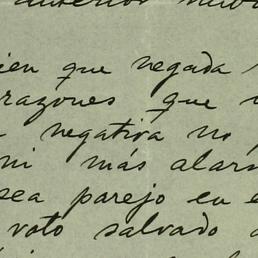 anterior
que negada
razones que
negativa no
ni más
sea parejo en
voto salvado